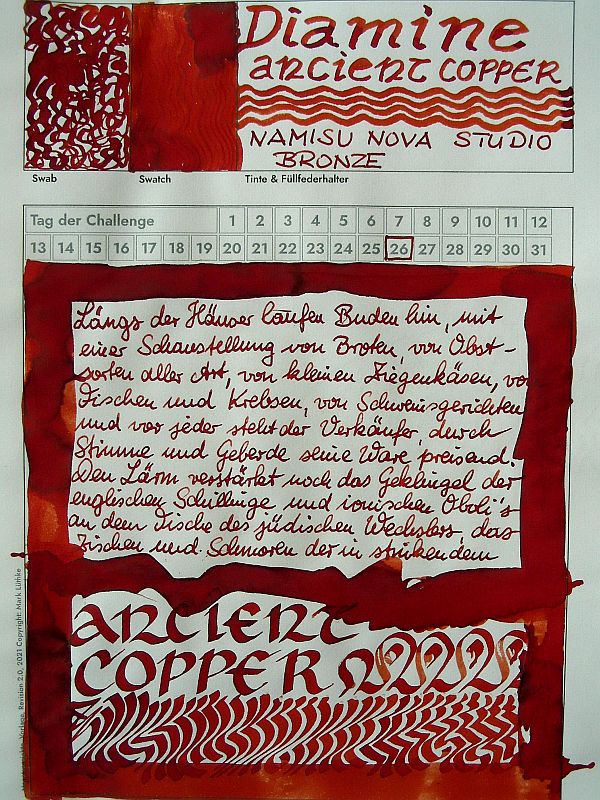 Diamine
ancient COPPER
NAMISU NOVA STUDIO
BRONZE
Swab Swatch Tinte & Füllfederhalter
Tag der Challenge 1 2 3 4 5 6 7 8 9 10 11 12
13 14 15 16 17 18 19 20 21 22 23 24 25 26 27 28 29 30 31
Längs der Häuser laufen Buden hin, mit
einer Schaustellung von Broten, von Obst-
sorten aller Art, von kleinen Ziegenkäsen, von
Fischen und Krebsen, von Schweinsgerichten
und vor jeder steht der Verkäufer, durch
Stimme und Geberde seine Ware preisend.
Den Lärm verstärkt noch das Geklingel der
englischen Schillinge und ionischen Oboli's
an dem Tische des jüdischen Wechslers, das
Zischen und Schmoren der in stinkendem
ANCIENT
COPPER
Vorlage, Revision 2.0, 2021 Copyright: Mark Lühke